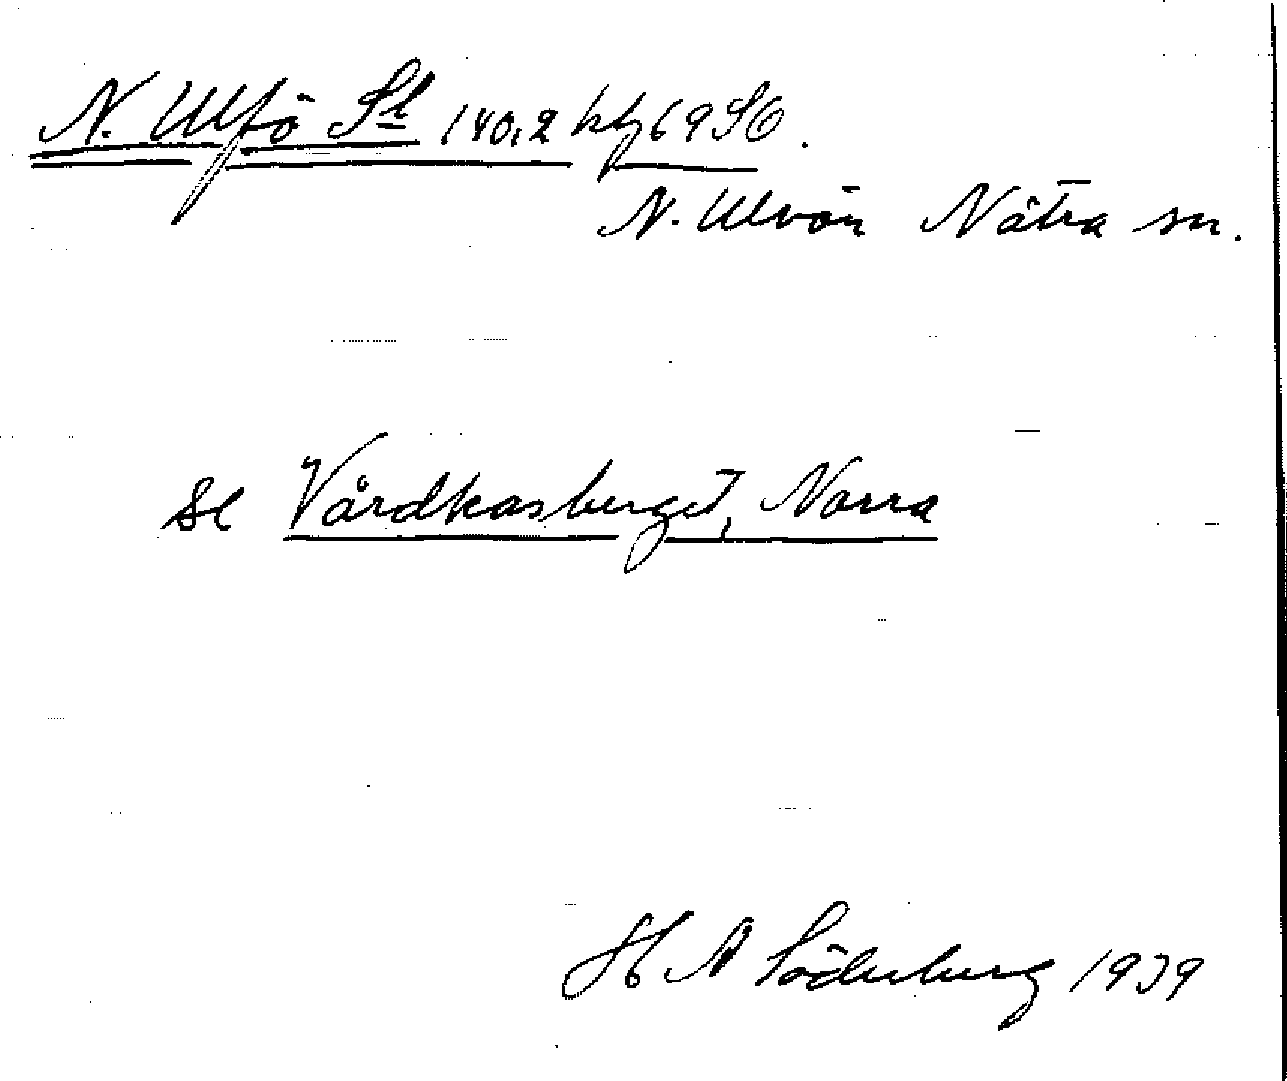 N. Ulfö St 140,2 htg 69 S6.
N. Ulvön Nätra sn.
se Vårdkasberget, Norra
H A Söderberg 1939